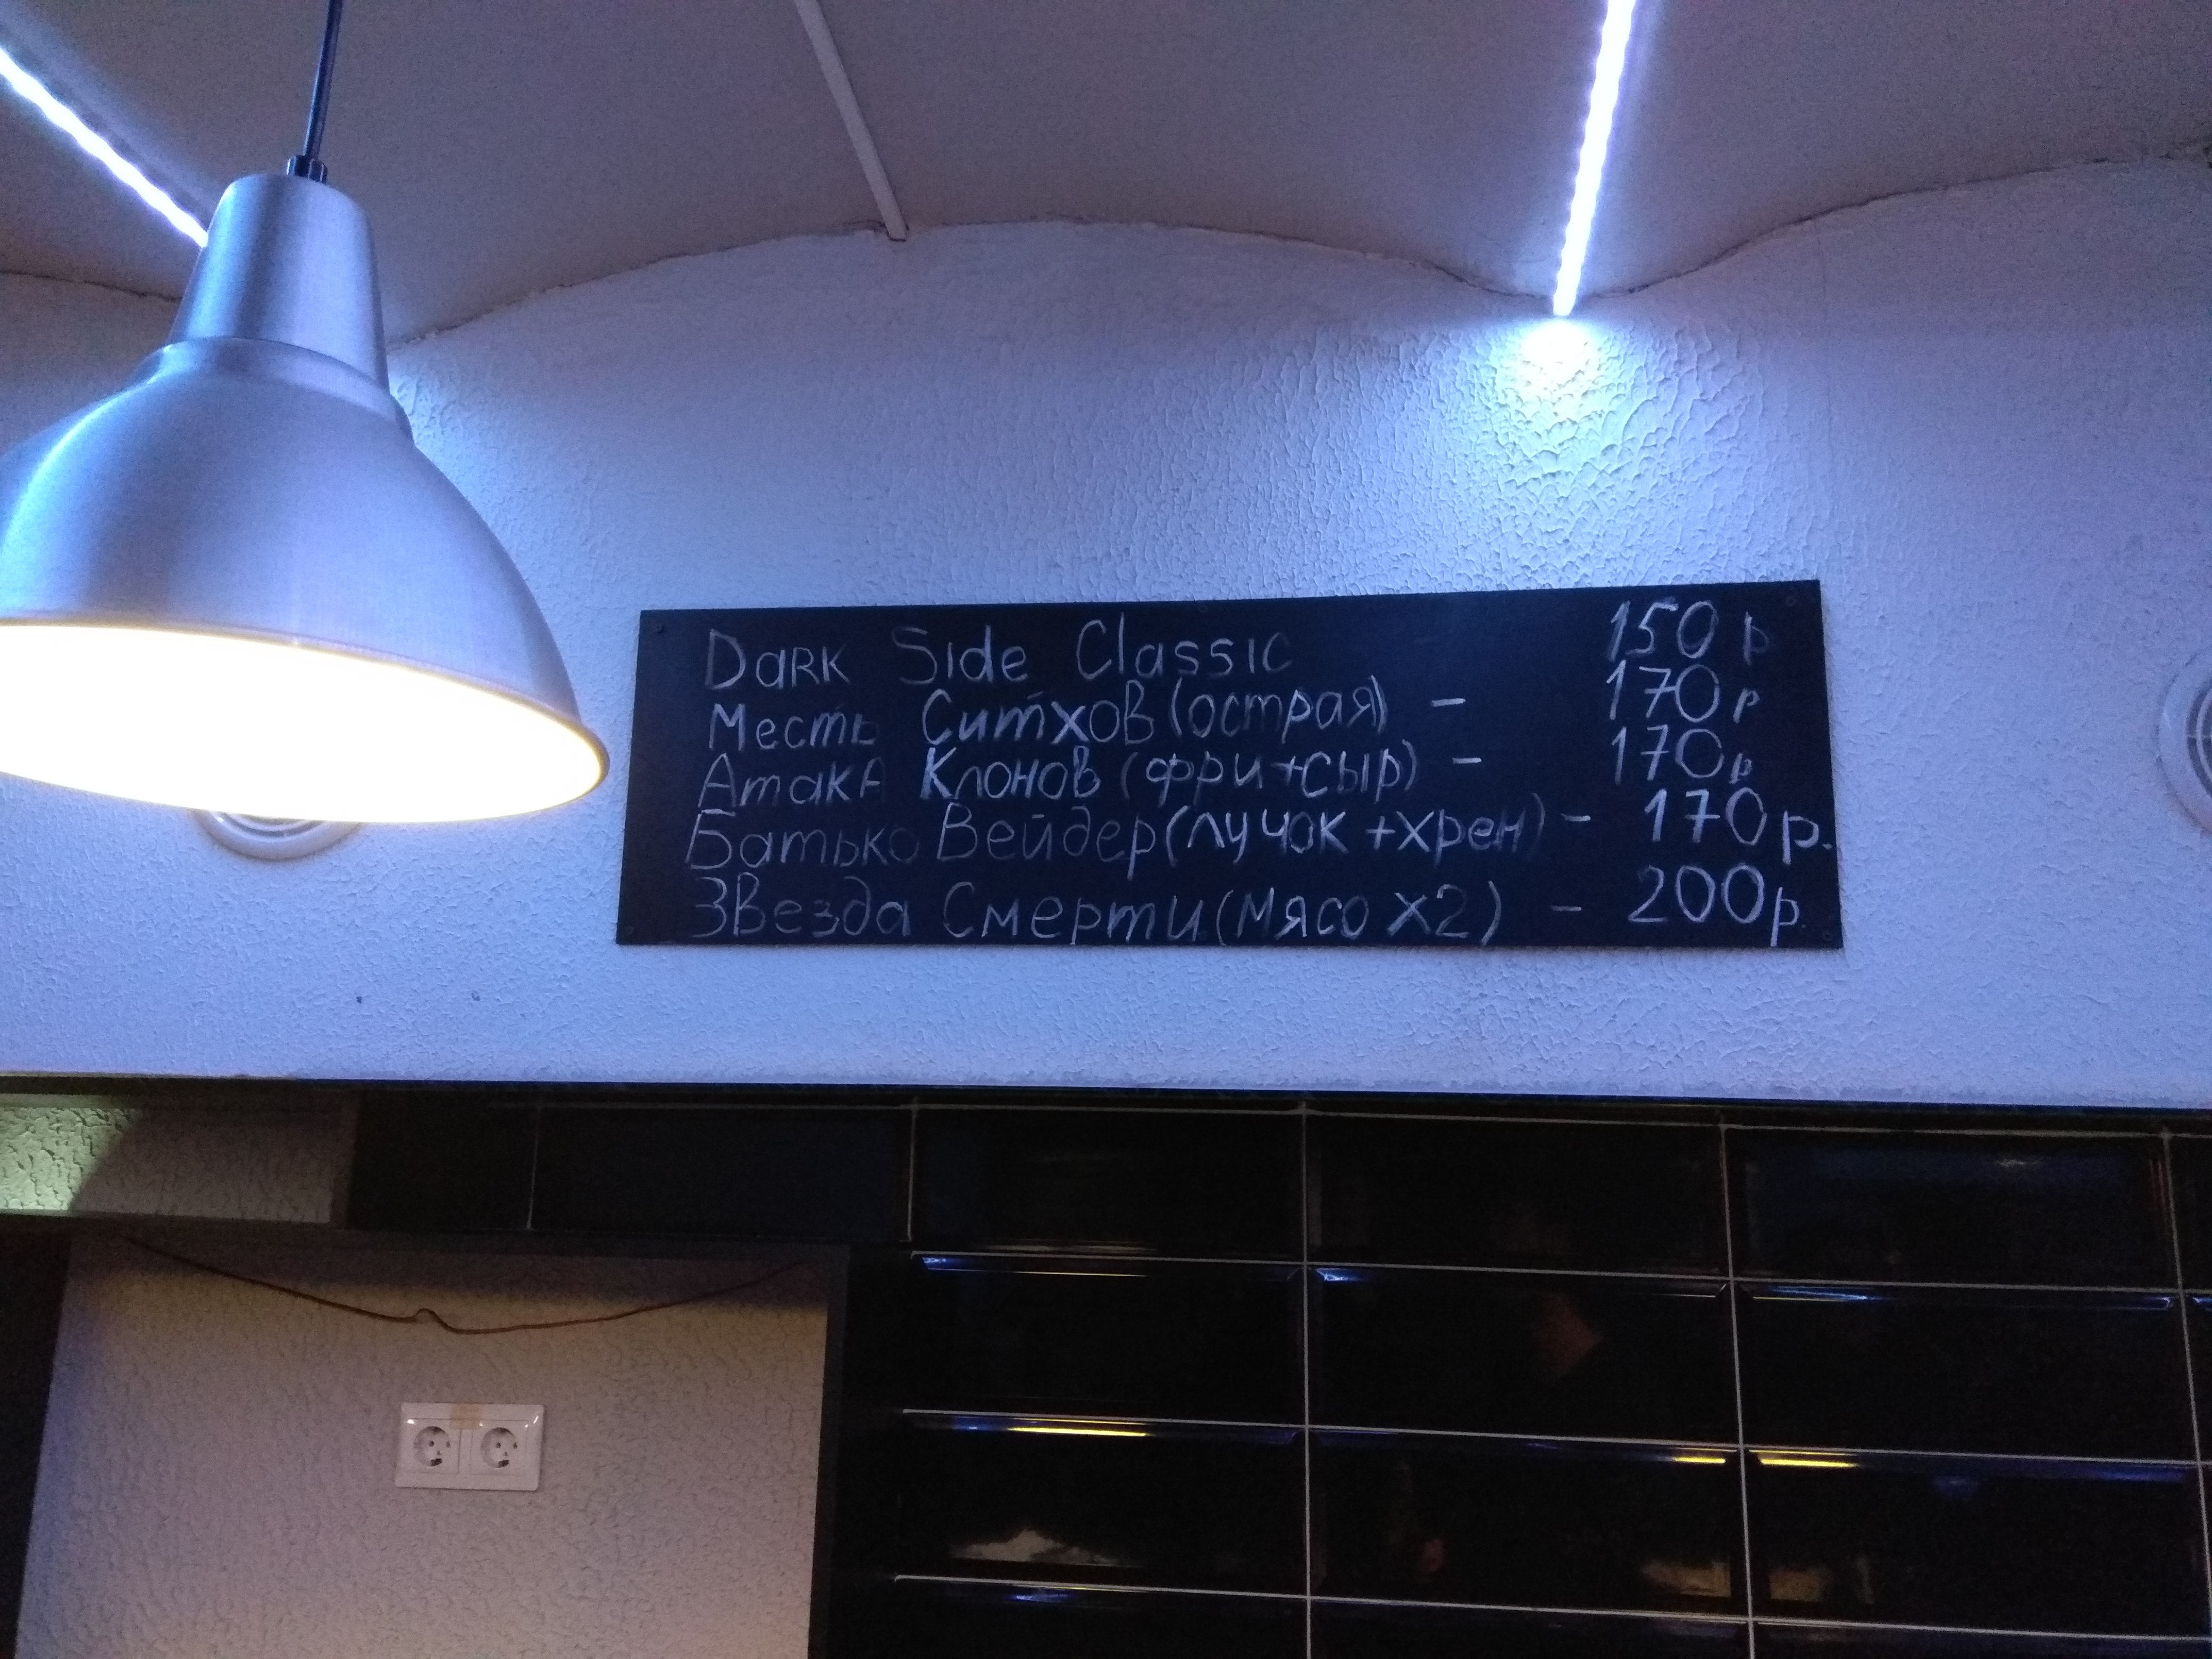 Dark Side Classic 150 р
Месть Ситхов (острая) - 170 р
АтакА Клонов (фри+сыр) - 170 р
Батько Вейдер (лучок + хрен) - 170 р.
ЗВезда Смерти (мясо х2) - 200 р.